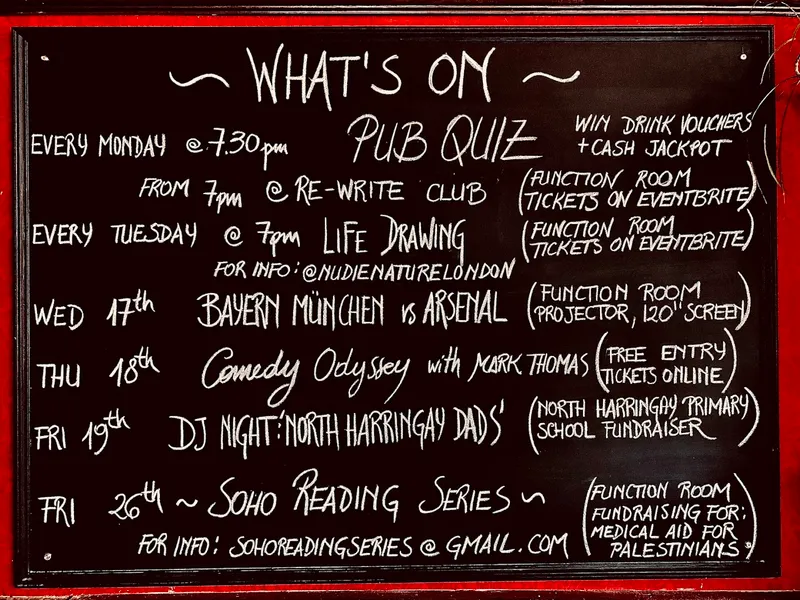 ~ WHAT'S ON ~
EVERY MONDAY @ 7.30pm PUB QUIZ WIN DRINK VOUCHERS
+ CASH JACKPOT
FROM 7pm @ RE-WRITE CLUB (FUNCTION ROOM
TICKETS ON EVENTBRITE)
EVERY TUESDAY @ 7pm LIFE DRAWING (FUNCTION ROOM
TICKETS ON EVENTBRITE)
FOR INFO: @NUDIENATURELONDON
WED 17th BAYERN MÜNCHEN vs ARSENAL (FUNCTION ROOM
PROJECTOR, 120" SCREEN)
THU 18th Comedy Odyssey with MARK THOMAS (FREE ENTRY
TICKETS ONLINE)
FRI 19th DJ NIGHT: 'NORTH HARRINGAY DADS' (NORTH HARRINGAY PRIMARY
SCHOOL FUNDRAISER)
FRI 26th ~ SOHO READING SERIES ~ (FUNCTION ROOM
FUNDRAISING FOR:
MEDICAL AID FOR
PALESTINIANS)
FOR INFO: SOHOREADINGSERIES @ GMAIL.COM